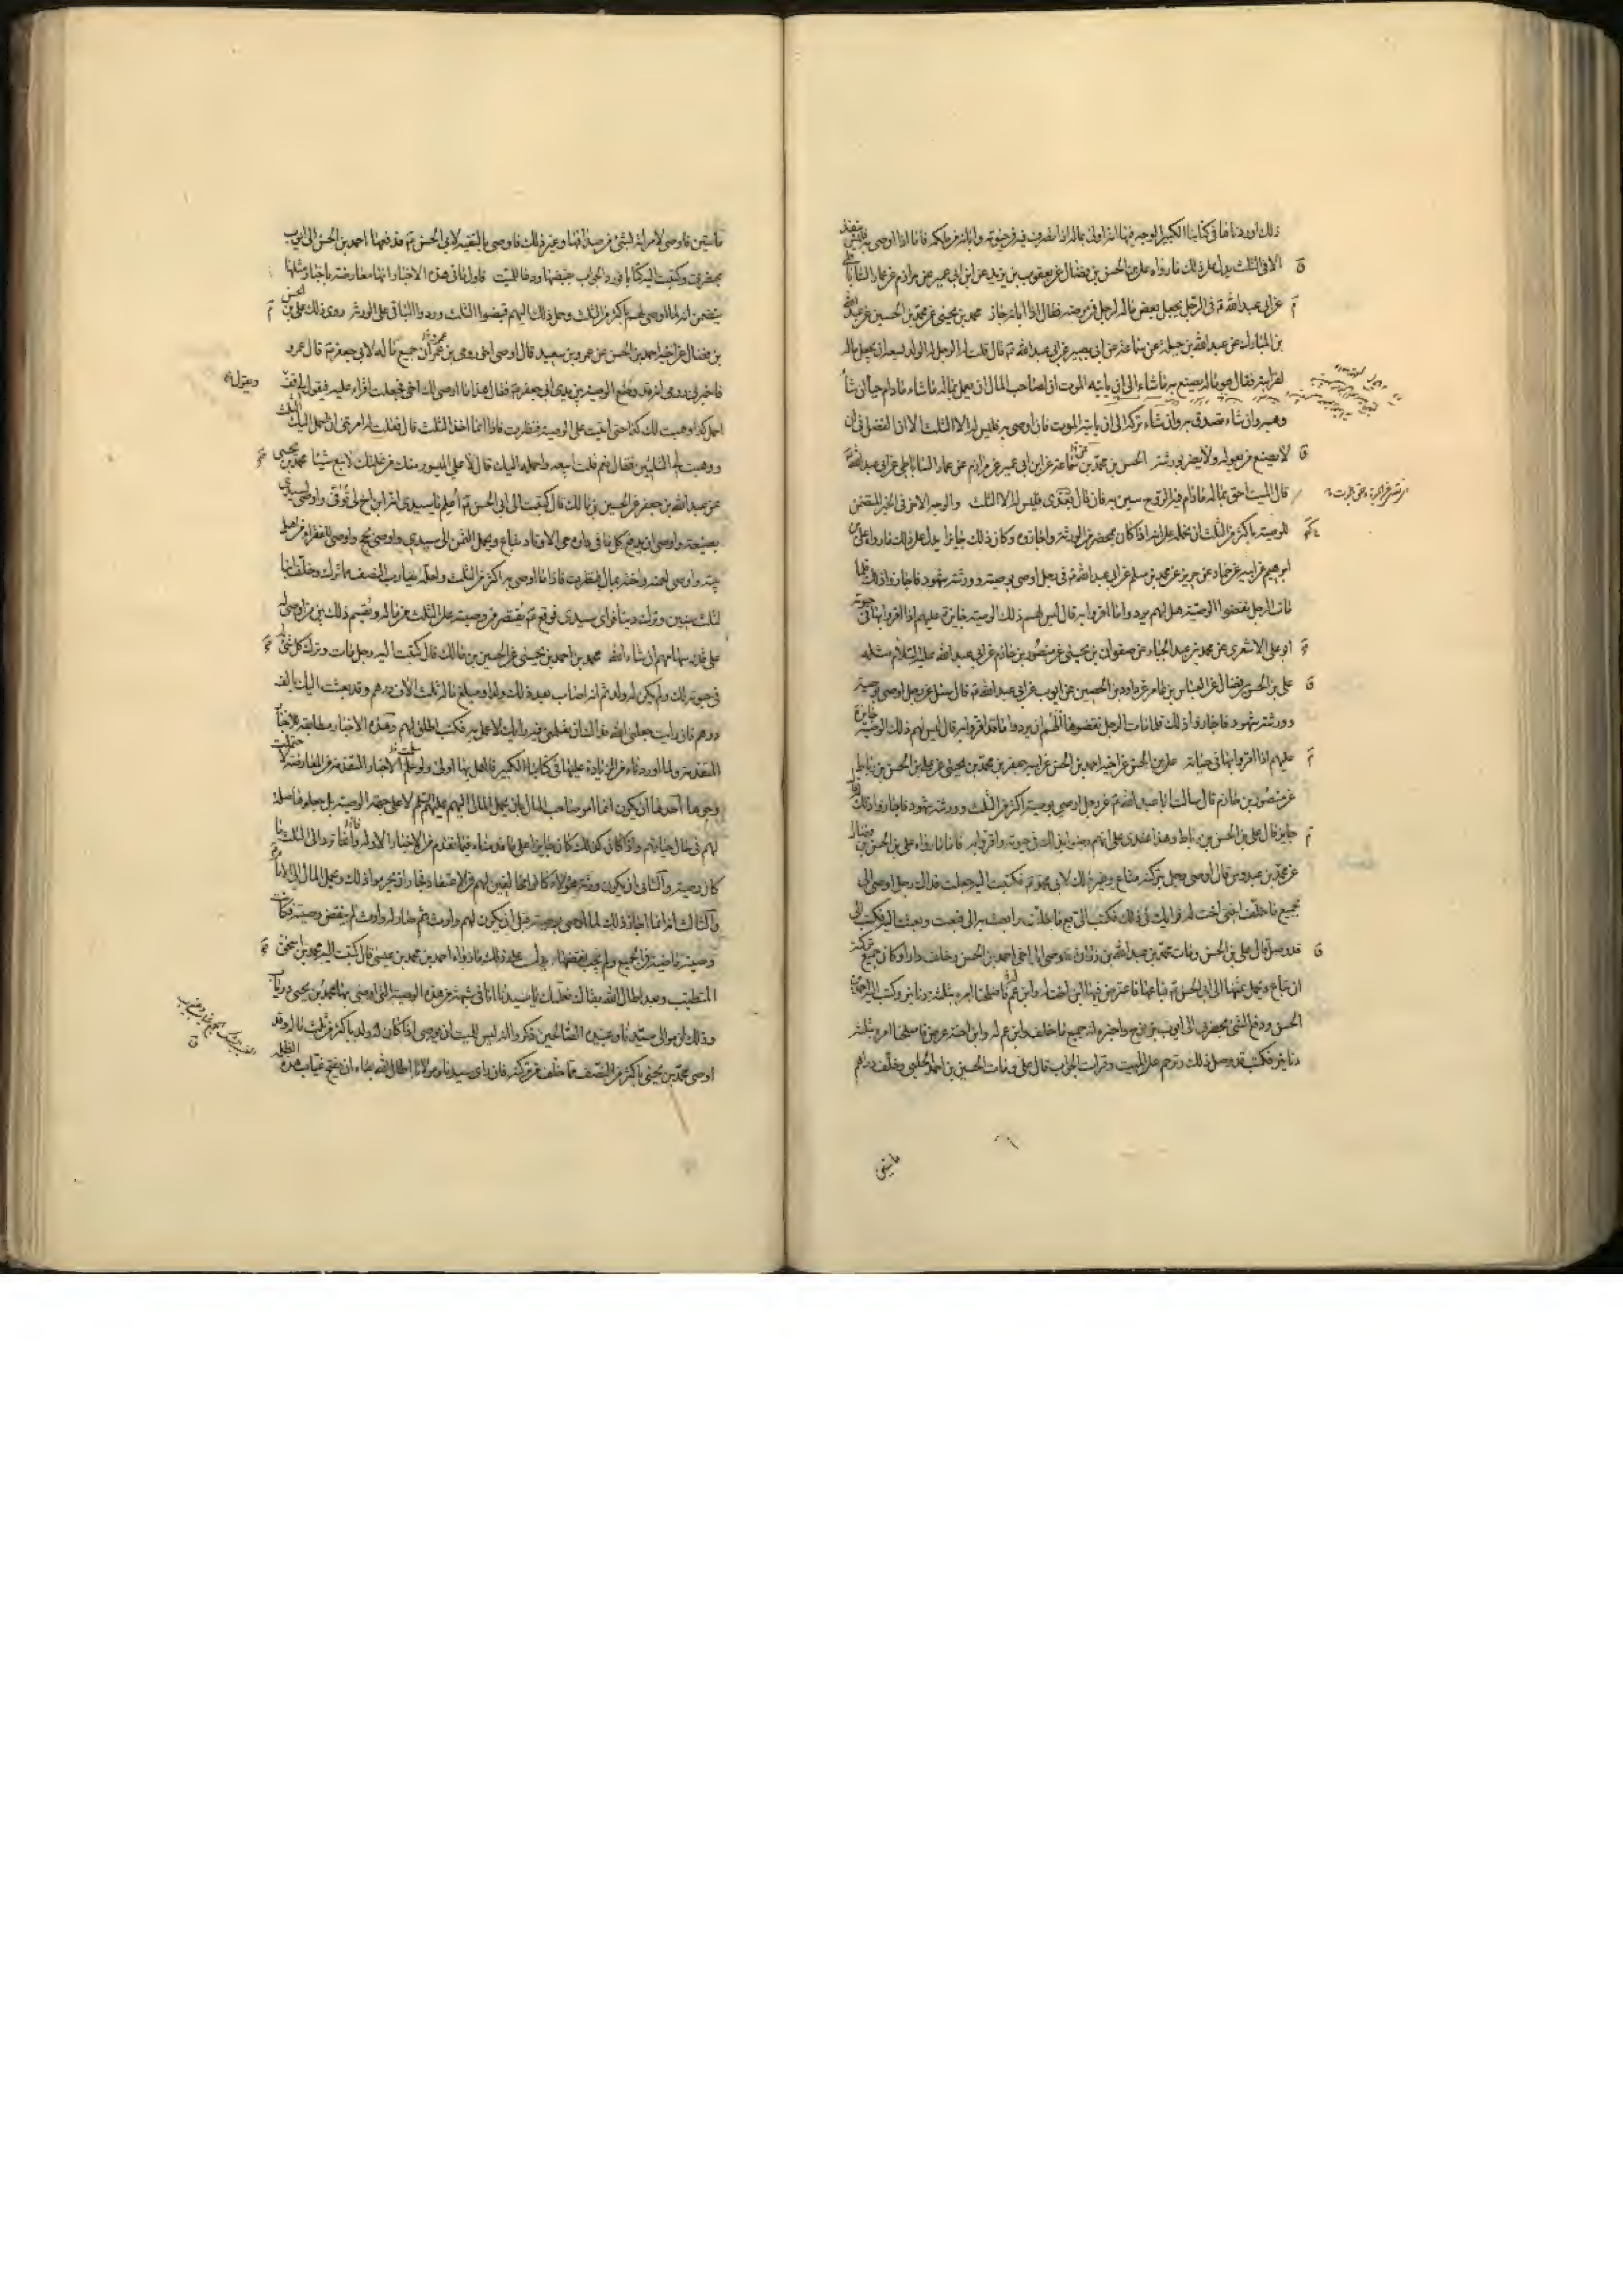 ذلك اوردناها في كتابنا الكبير الوجه فيها انه اولى بماله اذا تصرف فيه في حيوته وابانه من ملكه فاما اذا اوصى به فليس ينفذ
الا في الثلث يدل على ذلك ما رواه علي بن الحسن بن فضال عن يعقوب بن يزيد عن ابن ابي عمير عن مرازم عن عمار الساباطي
عن ابي عبد الله ع في الرجل يجعل بعض ماله لرجل في مرضه فقال اذا ابانه جاز محمد بن يحيى عن محمد بن الحسين عن عبد الله
بن المبارك عن عبد الله بن جبلة عن سماعة عن ابي بصير عن ابي عبد الله ع قال قلت له الرجل له الولد يسعه ان يجعل ماله
لقرابته فقال هو ماله يصنع به ما شاء الى ان ياتيه الموت ان لصاحب المال ان يعمل بماله ما شاء ما دام حيا ان شاء
وهبه وان شاء تصدق به وان شاء تركه الى ان ياتيه الموت فان اوصى به فليس له الا الثلث الا ان الفضل في ان
لا يضيع من يعوله ولا يضر بورثته الحسن بن محمد بن سماعة عن ابن ابي عمير عن مرازم عن عمار الساباطي عن ابي عبد الله ع
قال الميت احق بماله ما دام فيه الروح يبين به فان قال بعدي فليس له الا الثلث والوجه الاخر في الخبر المتضمن
للوصية باكثر من الثلث ان نحمله على انه اذا كان بمحضر من الورثة واجازوه وكان ذلك جايزا يدل على ذلك ما رواه علي بن
ابرهيم عن ابيه عن حماد عن حريز عن محمد بن مسلم عن ابي عبد الله ع في رجل اوصى بوصية وورثته شهود فاجازوا ذلك فلما
مات الرجل نقضوا الوصية هل لهم ان يردوا ما اقروا به قال ليس لهم ذلك الوصية جايزة عليهم اذا اقروا بها في حيوته
ابو علي الاشعري عن محمد بن عبد الجبار عن صفوان بن يحيى عن منصور بن حازم عن ابي عبد الله عليه السلام مثله
علي بن الحسن بن فضال عن العباس بن عامر عن داود بن الحصين عن ابي ايوب عن ابي عبد الله ع قال سئل عن رجل اوصى بوصية
وورثته شهود فاجازوا ذلك فلما مات الرجل نقضوها الهم ان يردوا ما قد اقروا به قال ليس لهم ذلك الوصية جايزة
عليهم اذا اقروا بها في حياته علي بن الحسن عن اخيه احمد بن الحسن عن ابيه جعفر بن محمد بن يحيى عن علي بن الحسن بن رباط
عن منصور بن حازم قال سالت ابا عبد الله ع عن رجل اوصى بوصية اكثر من الثلث وورثته شهود فاجازوا ذلك له قال
جايز قال علي بن الحسن بن رباط وهذا عندي على انهم رضوا بذلك في حيوته واقروا به فاما ما رواه علي بن الحسن بن فضال
عن محمد بن عبدوس قال اوصى رجل بتركته متاع وغير ذلك لابي محمد ع فكتبت اليه جعلت فداك رجل اوصى الي
بجميع ما خلف لك وخلف ابنتي اخت له فرايك في ذلك فكتب الي بع ما خلف وابعث به الي فبعت وبعثت اليه فكتب الي
قد وصل قال علي بن الحسن ومات محمد بن عبد الله بن زرارة فاوصى الى اخي احمد بن الحسن وخلف دارا وكان اوصى في جميع تركته
ان تباع ويحمل ثمنها الى ابي الحسن ع فباعها فاعترض فيها ابن اخت له وابن عم له فاصلحنا امره بثلثة دنانير وكتب اليه احمد بن
الحسن ودفع الشيء بحضرتي الى ايوب بن نوح واخبره انه جميع ما خلف وابن عم له وابن اخته عرض فاصلحنا امره بثلثة
دنانير فكتب قد وصل ذلك وترحم على الميت وقرات الجواب قال علي ومات الحسين بن احمد الحلبي وخلف دراهم
مايتين
مايتين فاوصى لامراته بشيء من صداقها وغير ذلك واوصى بالبقية لابي الحسن ع فدفعها احمد بن الحسن الى ايوب
بحضرتي وكتبت اليه كتابا فورد الجواب بقبضها ودعا للميت فاول ما في هذه الاخبار انها معارضة باخبار مثلها
يتضمن انه لما اوصى لهم باكثر من الثلث وحمل ذلك اليهم قبضوا الثلث وردوا الباقي على الورثة روى ذلك علي بن الحسن
بن فضال عن اخيه احمد بن الحسن عن عمرو بن سعيد قال اوصى اخو رومي بن عمران جميع ماله لابي جعفر ع قال عمرو
فاخبرني رومي انه وضع الوصية بين يدي ابي جعفر ع فقال هذا ما اوصى لك اخي فجعلت اقراء عليه فيقول لي قف
احمل كذا ووهبت لك كذا حتى اتيت على الوصية فنظرت فاذا انما اخذ الثلث قال فقلت له امرتني ان احمل اليك الثلث
ووهبت لي الثلثين فقال نعم قلت ابيعه واحمله اليك قال لا على الميسور منك من غلتك لا تبع شيئا محمد بن يحيى
عن عبد الله بن جعفر عن الحسين بن مالك قال كتبت الى ابي الحسن ع اعلم يا سيدي ان ابن اخ لي توفي واوصى لسيدي
بضيعة واوصى ان يدفع كل ما في داره حتى الاوتاد تباع ويحمل الثمن الى سيدي واوصى بحج واوصى للفقراء من اهل
بيته واوصى لعمته واخته بمال فنظرت فاذا ما اوصى به اكثر من الثلث ولعله يقارب النصف مما ترك وخلف ابنا
لثلث سنين وترك دينا فراى سيدي فوقع ع يقتصر من وصيته على الثلث من ماله ويقسم ذلك بين من اوصى له
على قدر سهامهم ان شاء الله محمد بن احمد بن يحيى عن الحسين بن مالك قال كتبت اليه رجل مات وترك كل شيء
في حيوته لك ولم يكن له ولد ثم انه اصاب بعد ذلك ولدا ومبلغ ماله ثلثة الاف درهم وقد بعثت اليك بالف
درهم فان رايت جعلني الله فداك ان تعلمني فيه رايك لاعمل به فكتب اطلق لهم وهذه الاخبار مطابقة للاخبار
المتقدمة ولما اوردناه من الزيادة عليها في كتابنا الكبير فالعمل بها اولى ولو سلمت الاخبار المتقدمة من المعارضة لاحتملت
وجوها احدها ان يكون انما امر صاحب المال بان يحمل المال اليهم عليهم السلام لا على جهة الوصية بل جعلوها صلة
لهم في حال حياتهم واذا كان كذلك كان جايزا على ما قدمناه فيما تقدم من الاخبار الاولة وانما ترد الى الثلث ما
كان وصية والثاني ان يكون ورثة هؤلاء كانوا مخالفين لهم في الاعتقاد فجاز ان يحرموا ذلك ويحمل المال الى الامام
والثالث انه انما اجاز ذلك لما اوصى بوصيته قبل ان يكون لهم وارث ثم صار له وارث لم ينقض وصيته فكانت
وصيته ماضية في الجميع ولم يجب نقضها يدل على ذلك ما رواه احمد بن محمد بن عيسى قال كتب اليه محمد بن اسحق
المتطبب وبعد اطال الله بقاك نعلمك يا سيدنا انا في شبهة من هذه الوصية التي اوصى بها محمد بن يحيى درياب
وذلك ان موالي سيدنا وعبيده الصالحين ذكروا انه ليس للميت ان يوصي اذا كان له ولد باكثر من ثلث ماله وقد
اوصى محمد بن يحيى باكثر من النصف مما خلف من تركته فان راى سيدنا ومولانا اطال الله بقاءه ان يفتح غياب هذه الظلمة